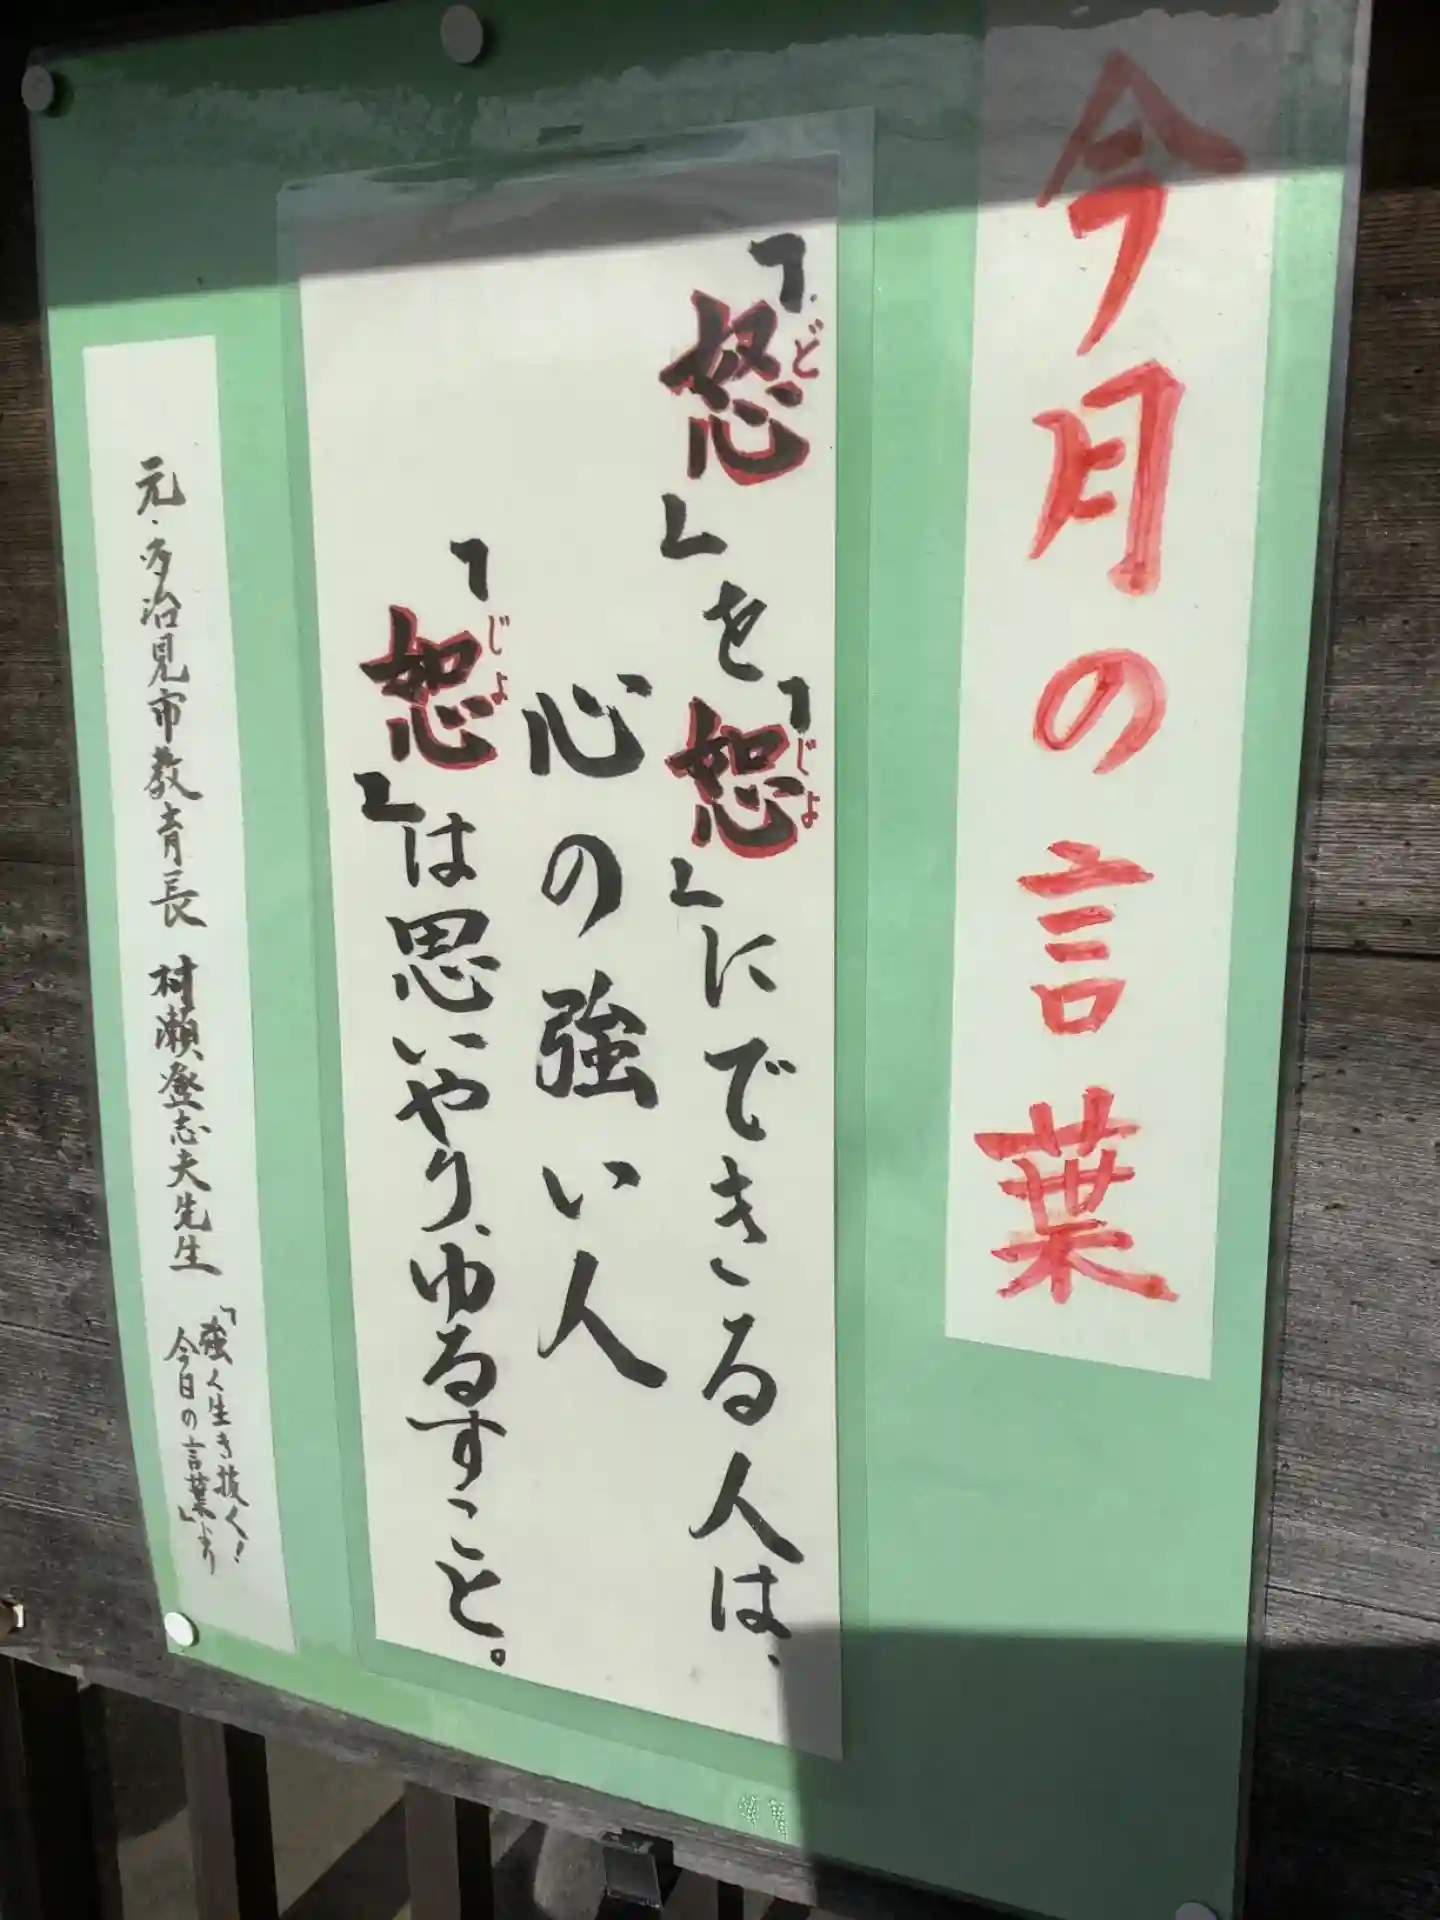 今月の言葉
「怒」を「恕」にできる人は、
ど
じよ
心の強い人
「恕」は思いやり、ゆるすこと。
じよ
元・多治見市教育長 村瀬登志夫先生
「強く生き抜く!
今日の言葉」より